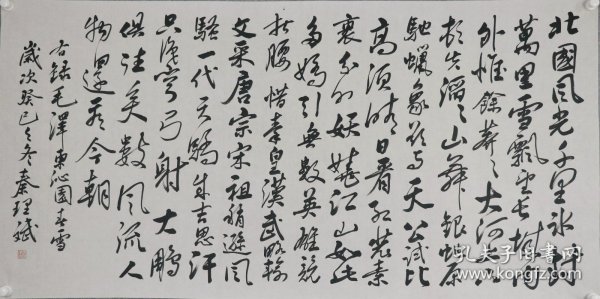 北國風光千里冰封
萬里雪飄望長城内
外惟餘莽々大河上下
頓失滔々山舞銀蛇原
馳蠟象欲与天公試比
高須晴日看紅裝素
裹分外妖嬈江山如此
多嬌引無數英雄競
折腰惜秦皇漢武略輸
文采唐宗宋祖稍遜風
騷一代天驕成吉思汗
只識彎弓射大鵰
俱往矣數風流人
物還看今朝
右録毛澤東沁園春雪
歲次癸巳之冬秦理斌
孔夫子旧书网
www.kongfz.com